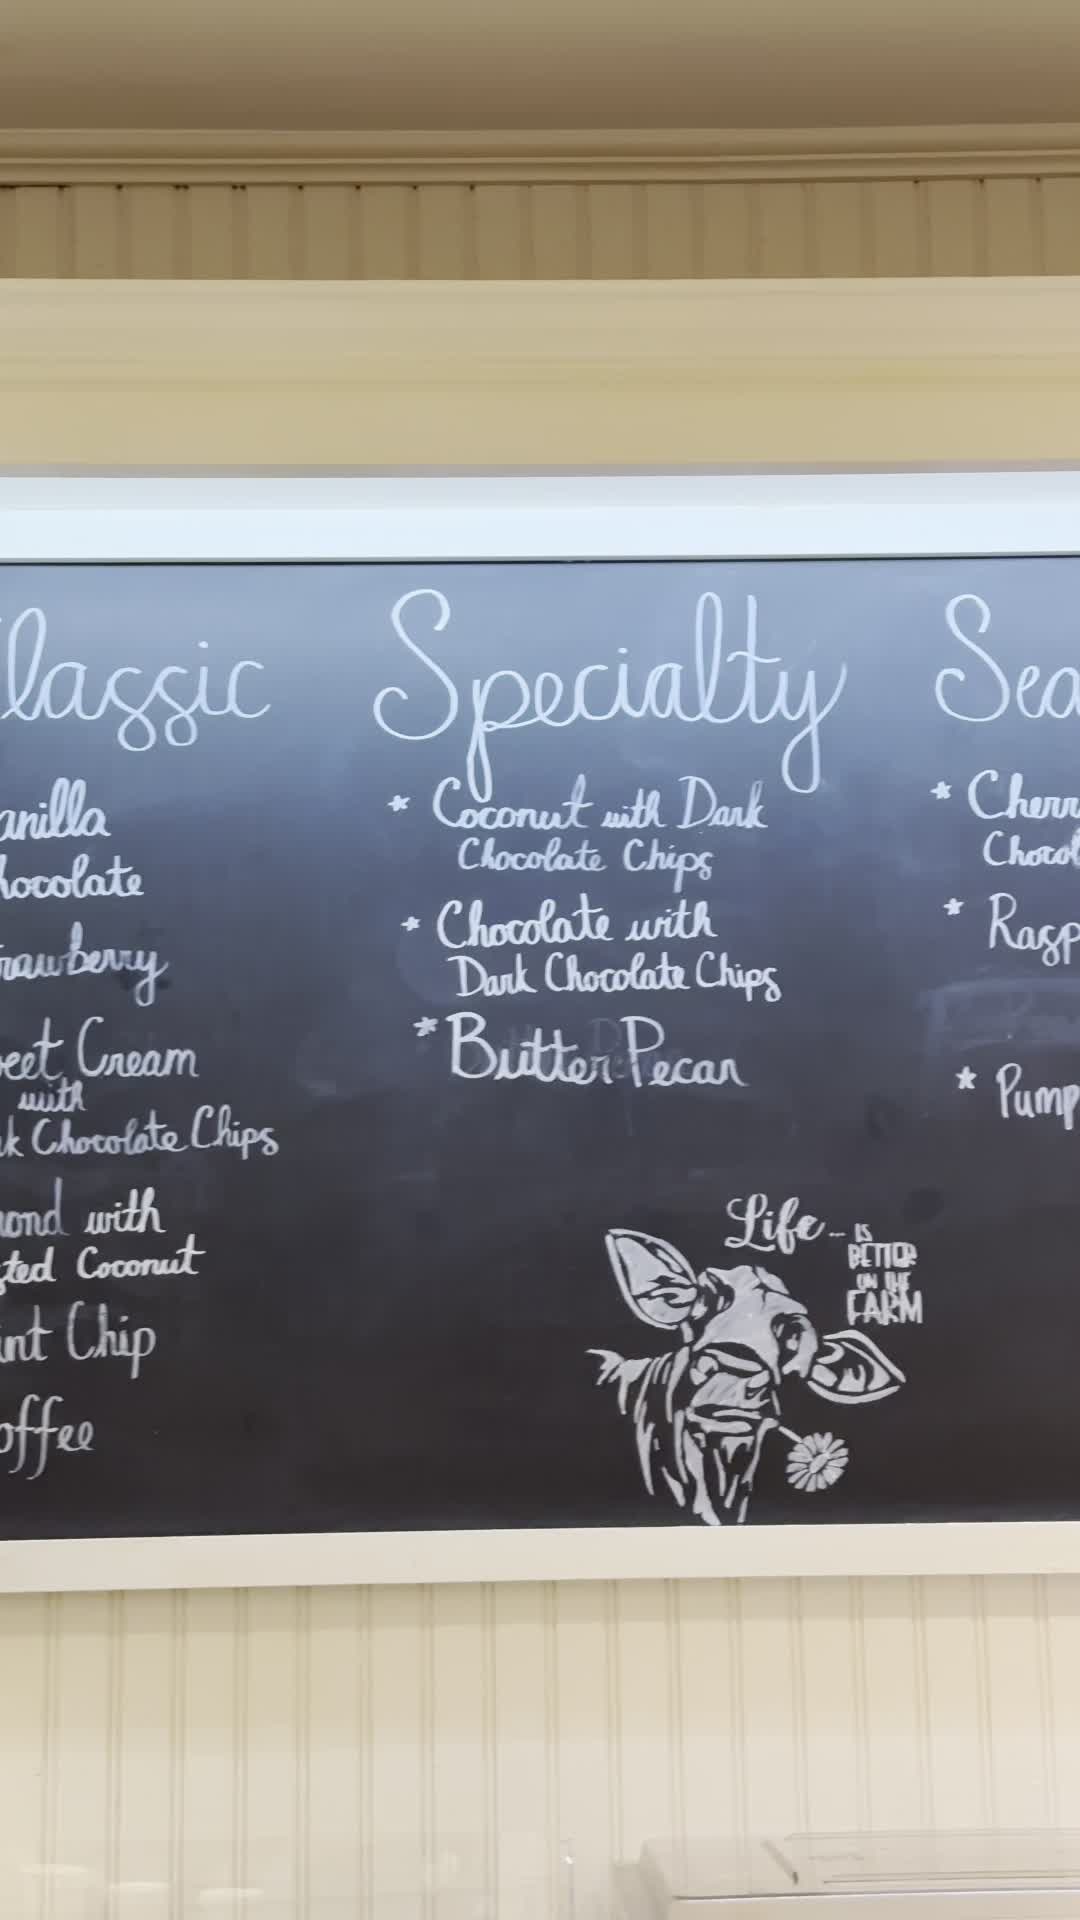 lassic
anilla
hocolate
rawberry
eet Cream
with
k Chocolate Chips
ond with
ted Coconut
int Chip
offee
Specialty
* Coconut with Dark
Chocolate Chips
* Chocolate with
Dark Chocolate Chips
* Butter Pecan
Life... IS
BETTER
ON THE
FARM
Sea
* Cherr
Chocol
* Rasp
* Pump